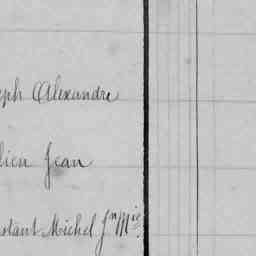 eph Alexandre
lien Jean
nstant Michel Jn Mie